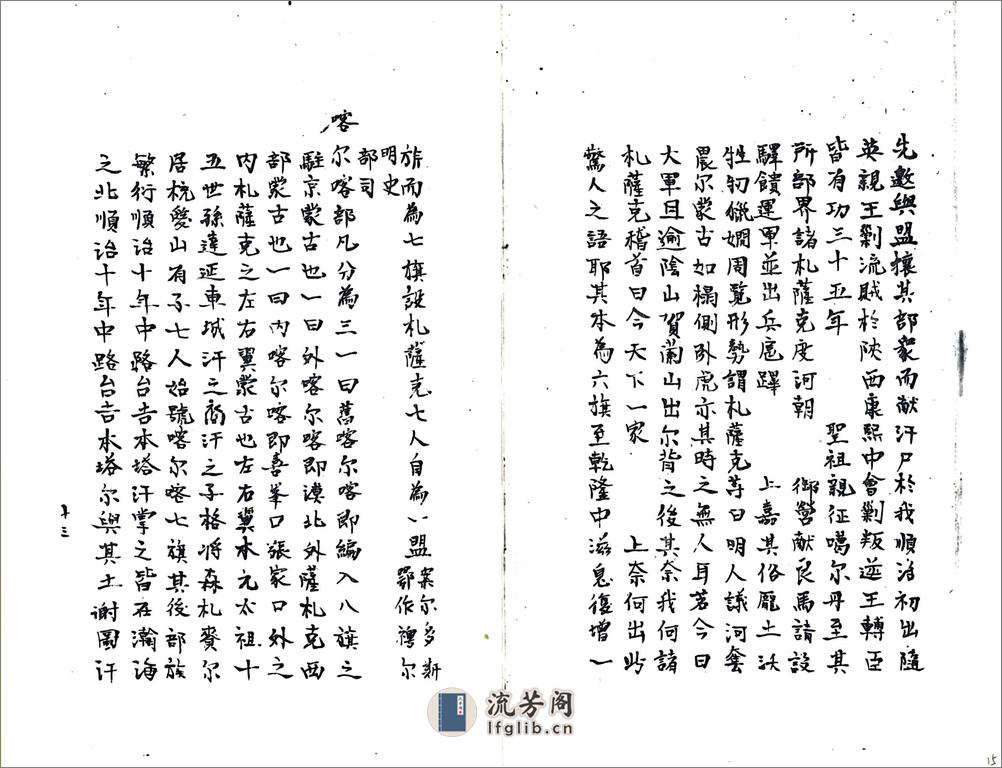 先邀與盟攘其部衆而献汗尸於我順治初出隨
英親王剿流賊於陝西康熙中會剿叛逆王轉臣
皆有功三十五年 聖祖親征噶尔丹至其
所部界諸札薩克度河朝 御營献良馬請設
驛饋運軍並出兵扈蹕 上嘉其俗厖土沃
牲牣獵嫻周覽形勢謂札薩克等曰明人議河套
畏尔蒙古如榻側卧虎亦其時之無人耳若今日
大軍且逾陰山賀蘭山出尔背之後其奈我何諸
札薩克稽首曰今天下一家 上奈何出此
驚人之語耶其本為六旗至乾隆中滋息復增一
旂而為七旗設札薩克七人自為一盟案尔多斯
明史鄂作禆尔
部司
喀尔喀部凡分為三一曰舊喀尔喀即編入八旗之
駐京蒙古也一曰外喀尔喀即漠北外薩札克西
部蒙古也一曰內喀尔喀即喜峯口張家口外之
內札薩克之左右翼蒙古也左右翼本元太祖十
五世孫達延車城汗之裔汗之子格將森札賚尔
居杭愛山有子七人始號喀尔喀七旗其後部族
繁衍順治十年中路台吉本塔汗掌之皆在瀚海
之北順治十年中路台吉本塔尔與其土谢圖汗
十三
流芳阁
lfglib.cn
15